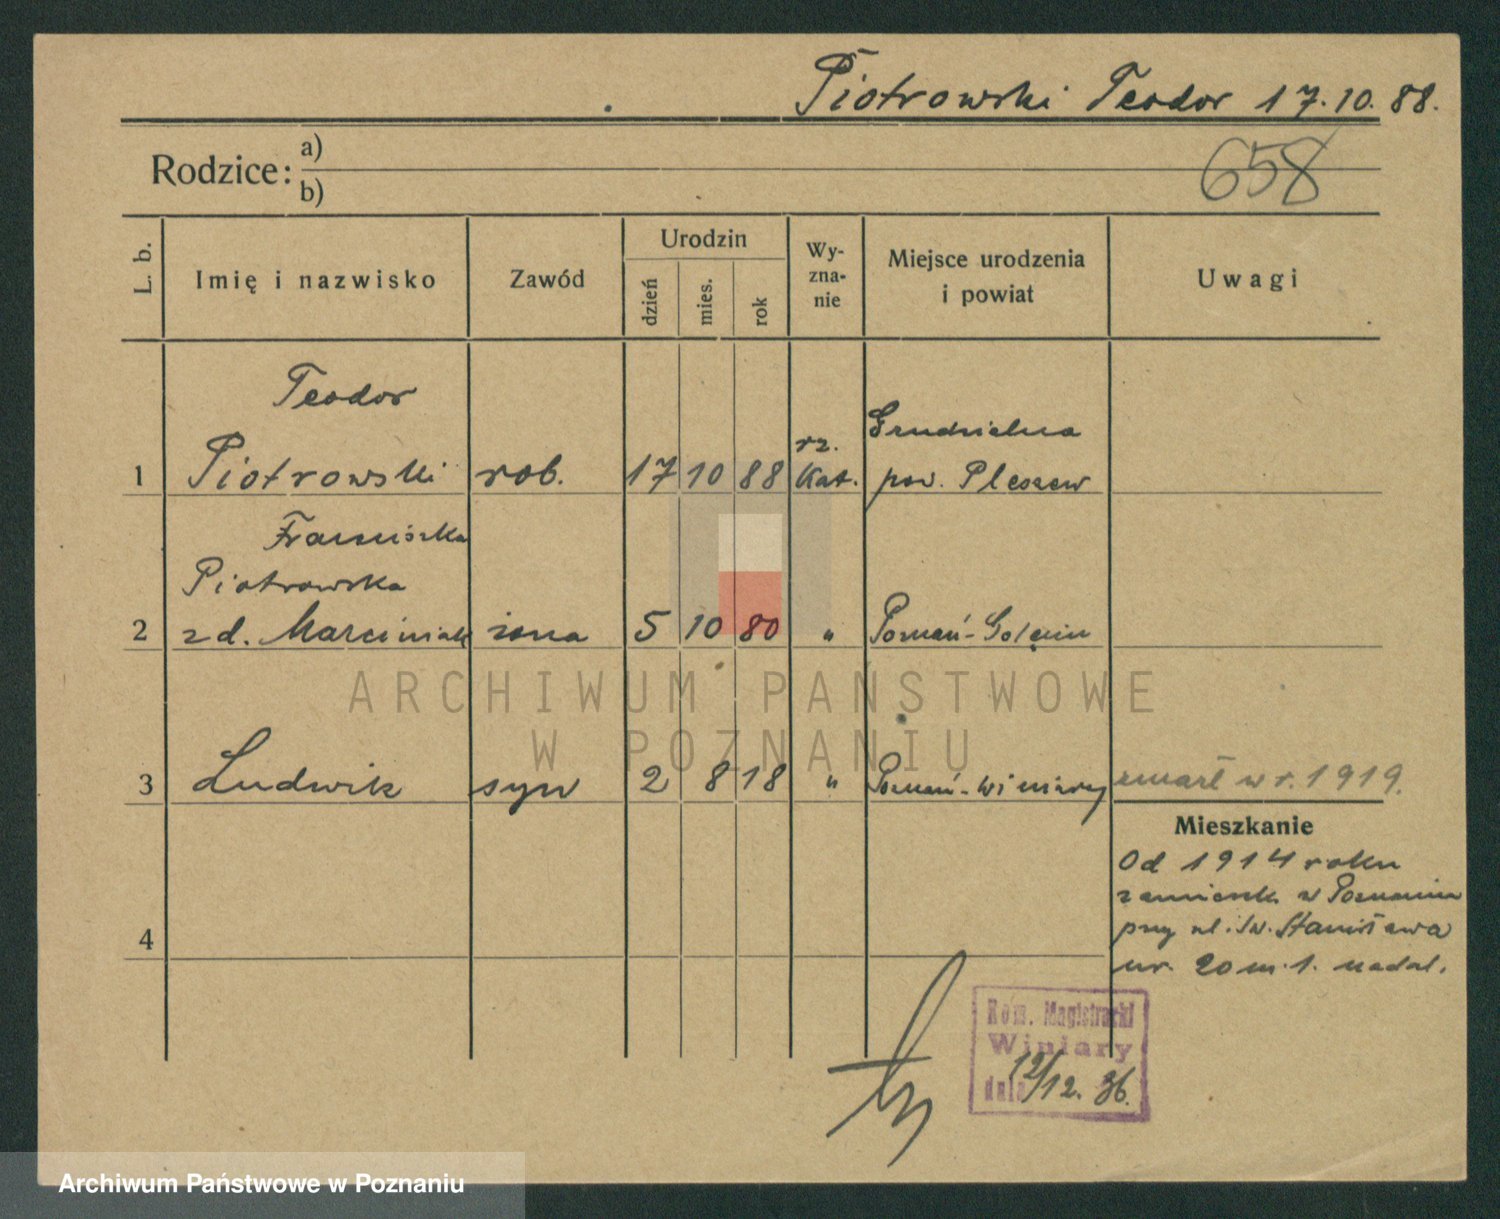 Piotrowski Teodor 17.10.88.
Rodzice: a)
b)
658
L. b.
Imię i nazwisko
Zawód
Urodzin
dzień
mies.
rok
Wy-
zna-
nie
Miejsce urodzenia
i powiat
Uwagi
Teodor
1 Piotrowski rob. 17 10 88 rz. Kat. Grudzielna pow. Pleszew
Franciszka
Piotrowska
2 zd. Marciniak żona 5 10 80 " Poznań-Golęcin
ARCHIWUM PAŃSTWOWE
W POZNANIU
3 Ludwik syn 2 8 18 " Poznań-Winiary zmarł w r. 1919.
Mieszkanie
Od 1914 roku
zamieszk. w Poznaniu
przy ul. Św. Stanisława
nr. 20 m. 1. nadal.
4
Kom. Magistracki
Winiary
dnia 12/12. 36.
Archiwum Państwowe w Poznaniu